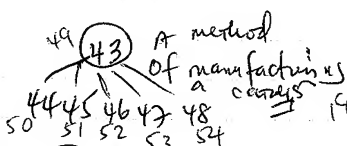 49 43 A method
of manufacturing
44 45 46 47 48 a
50 51 52 53 54
19